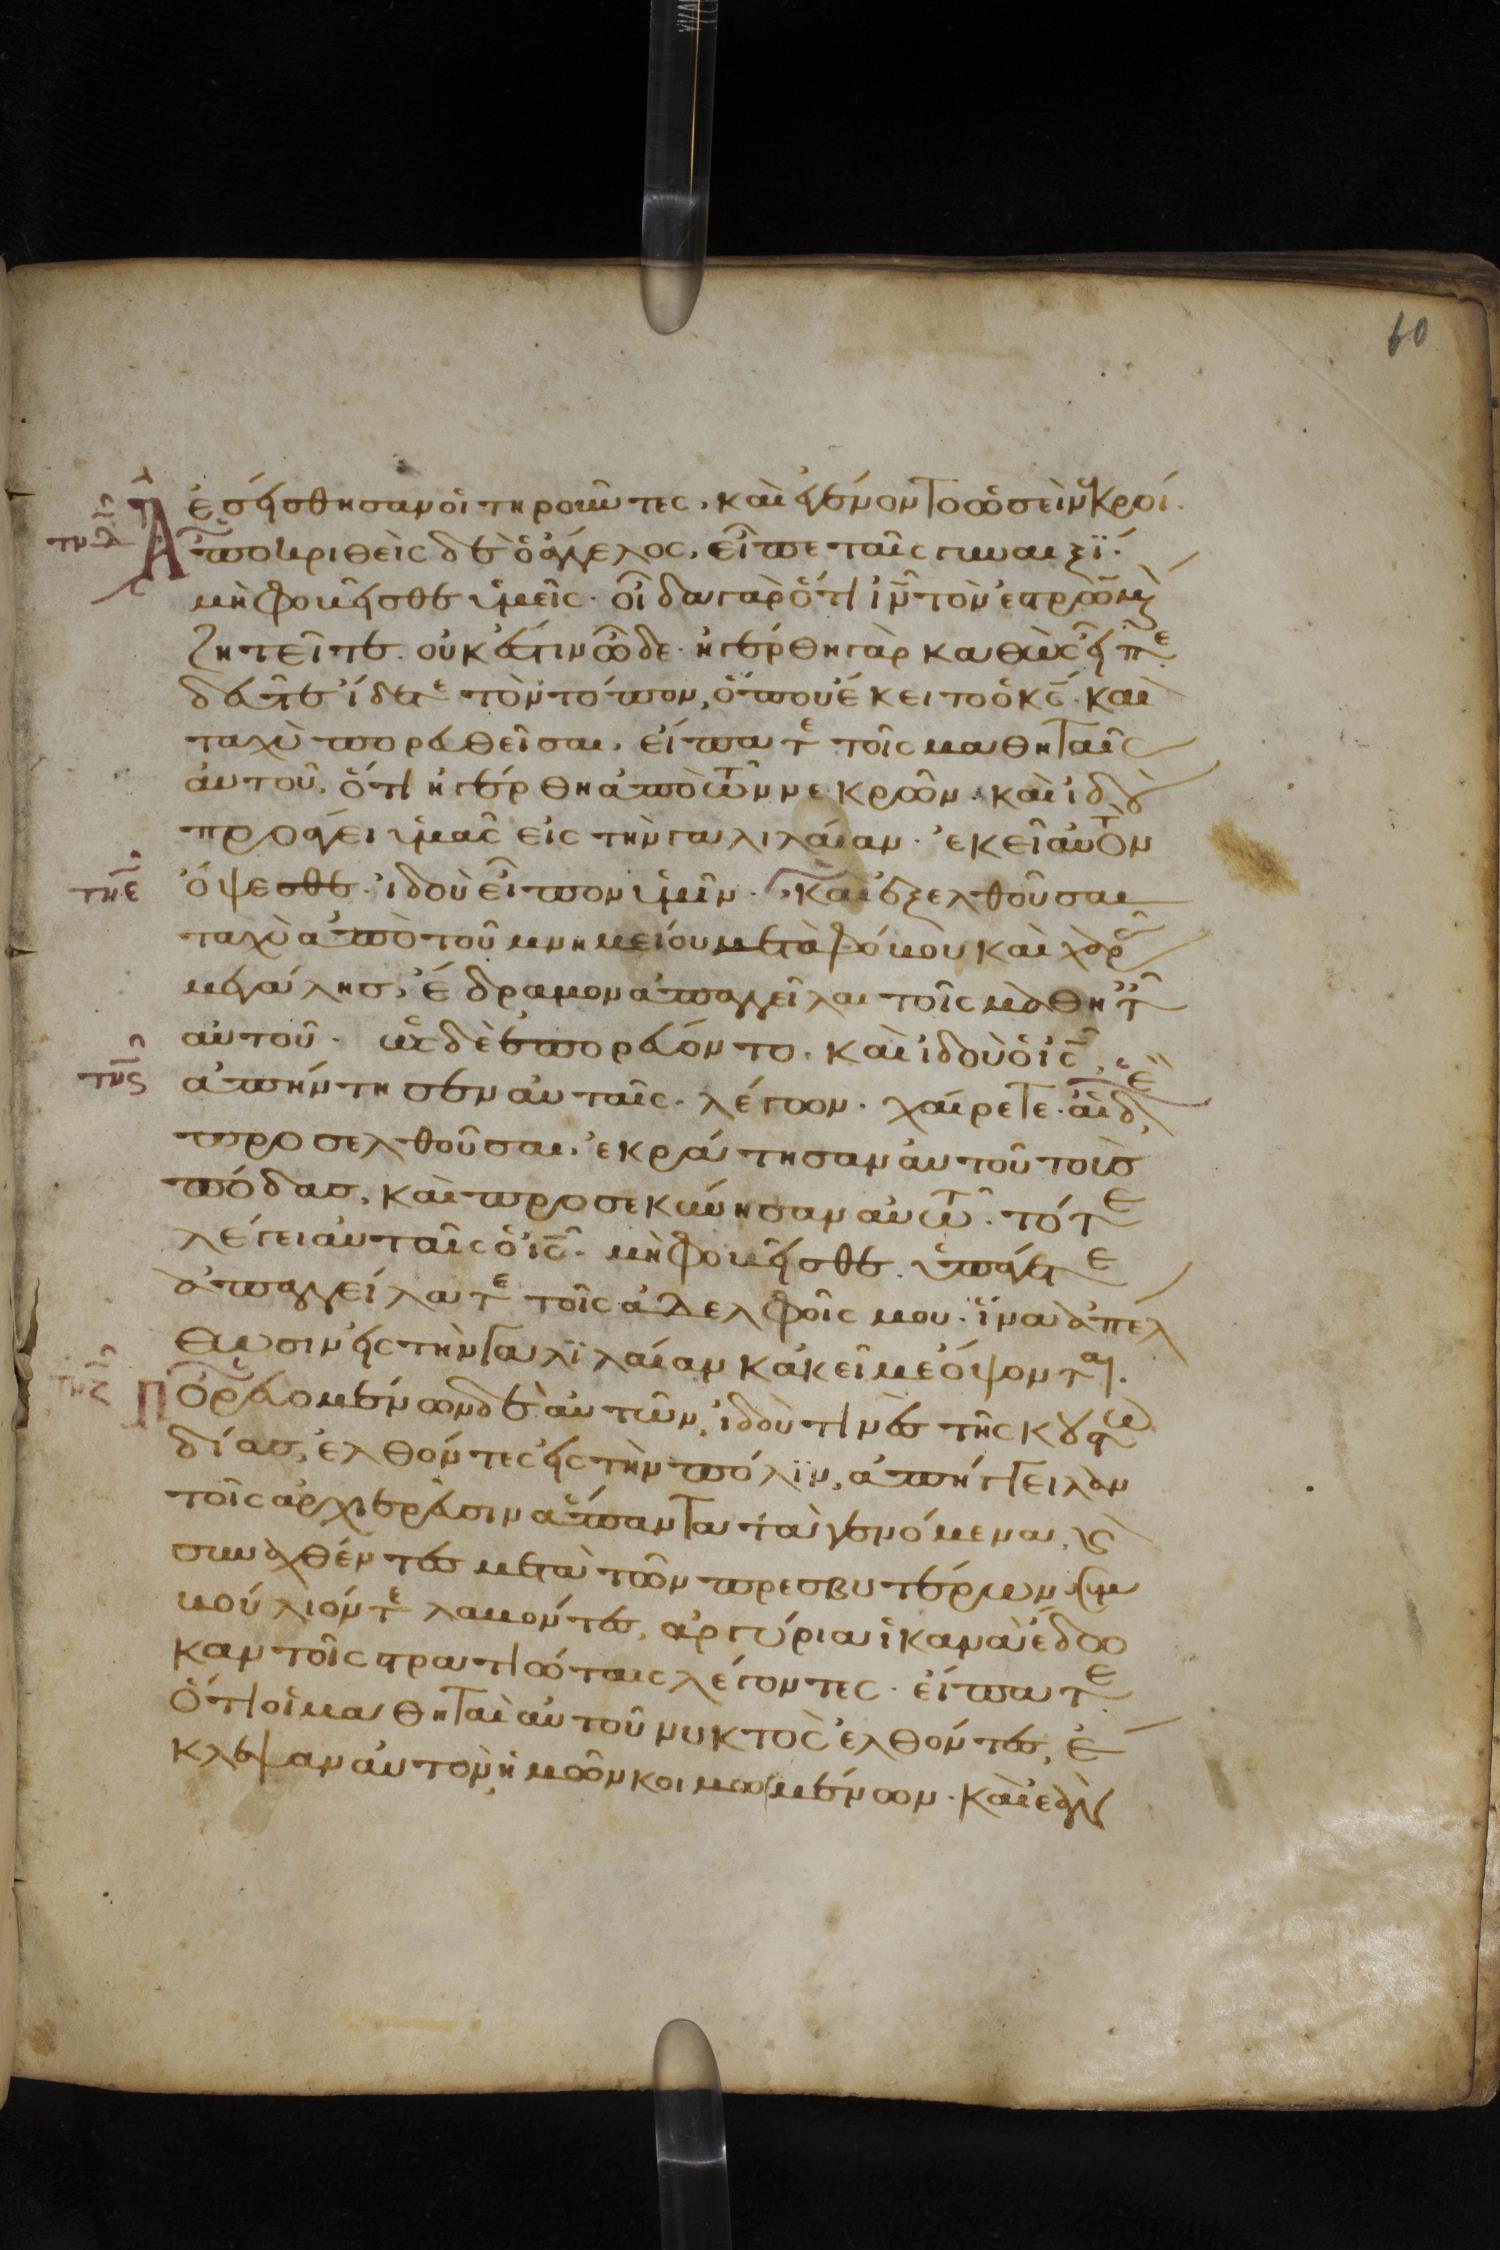 60
ἐσείσθησαν οἱ τηροῦντες, καὶ ἐγένοντο ὡσεὶ νεκροί.
Ἀποκριθεὶς δὲ ὁ ἄγγελος, εἶπε ταῖς γυναιξί·
μὴ φοβεῖσθε ὑμεῖς· οἶδα γὰρ ὅτι ἰν τὸν ἐστρωμένον
ζητεῖτε. οὐκ ἔστιν ὧδε· ἠγέρθη γὰρ καθὼς εἶπε.
δεῦτε ἴδετε τὸν τόπον, ὅπου ἔκειτο ὁ κς. καὶ
ταχὺ πορευθεῖσαι, εἴπατε τοῖς μαθηταῖς
αὐτοῦ, ὅτι ἠγέρθη ἀπὸ τῶν νεκρῶν. καὶ ἰδοὺ
προάγει ὑμᾶς εἰς τὴν γαλιλαίαν. ἐκεῖ αὐτὸν
τηε ὄψεσθε. ἰδοὺ εἶπον ὑμῖν. καὶ ἐξελθοῦσαι
ταχὺ ἀπὸ τοῦ μνημείου μετὰ φόβου καὶ χαρᾶς
μεγάλης, ἔδραμον ἀπαγγεῖλαι τοῖς μαθηταῖς
αὐτοῦ. ὡς δὲ ἐπορεύοντο, καὶ ἰδοὺ ὁ ις
της ἀπήντησεν αὐταῖς. λέγων. χαίρετε. αἱ δὲ
προσελθοῦσαι, ἐκράτησαν αὐτοῦ τοὺς
πόδας, καὶ προσεκύνησαν αὐτῶ. τότε
λέγει αὐταῖς ὁ ις. μὴ φοβεῖσθε. ὑπάγετε
ἀπαγγείλατε τοῖς ἀδελφοῖς μου. ἵνα ἀπέλ
θωσιν εἰς τὴν γαλιλαίαν κἀκεῖ με ὄψονται.
τηζ Πορευομένων δὲ αὐτῶν, ἰδού τινες τῆς κουστω
δίας, ἐλθόντες εἰς τὴν πόλιν, ἀπήγγειλαν
τοῖς ἀρχιερεῦσιν ἅπαντα τὰ γενόμενα, καὶ
συναχθέντες μετὰ τῶν πρεσβυτέρων συμ
βούλιόν τε λαβόντες, ἀργύρια ἱκανὰ ἔδω
καν τοῖς στρατιώταις λέγοντες. εἴπατε
ὅτι οἱ μαθηταὶ αὐτοῦ νυκτὸς ἐλθόντες, ἔ
κλεψαν αὐτὸν ἡμῶν κοιμωμένων. καὶ ἐὰν